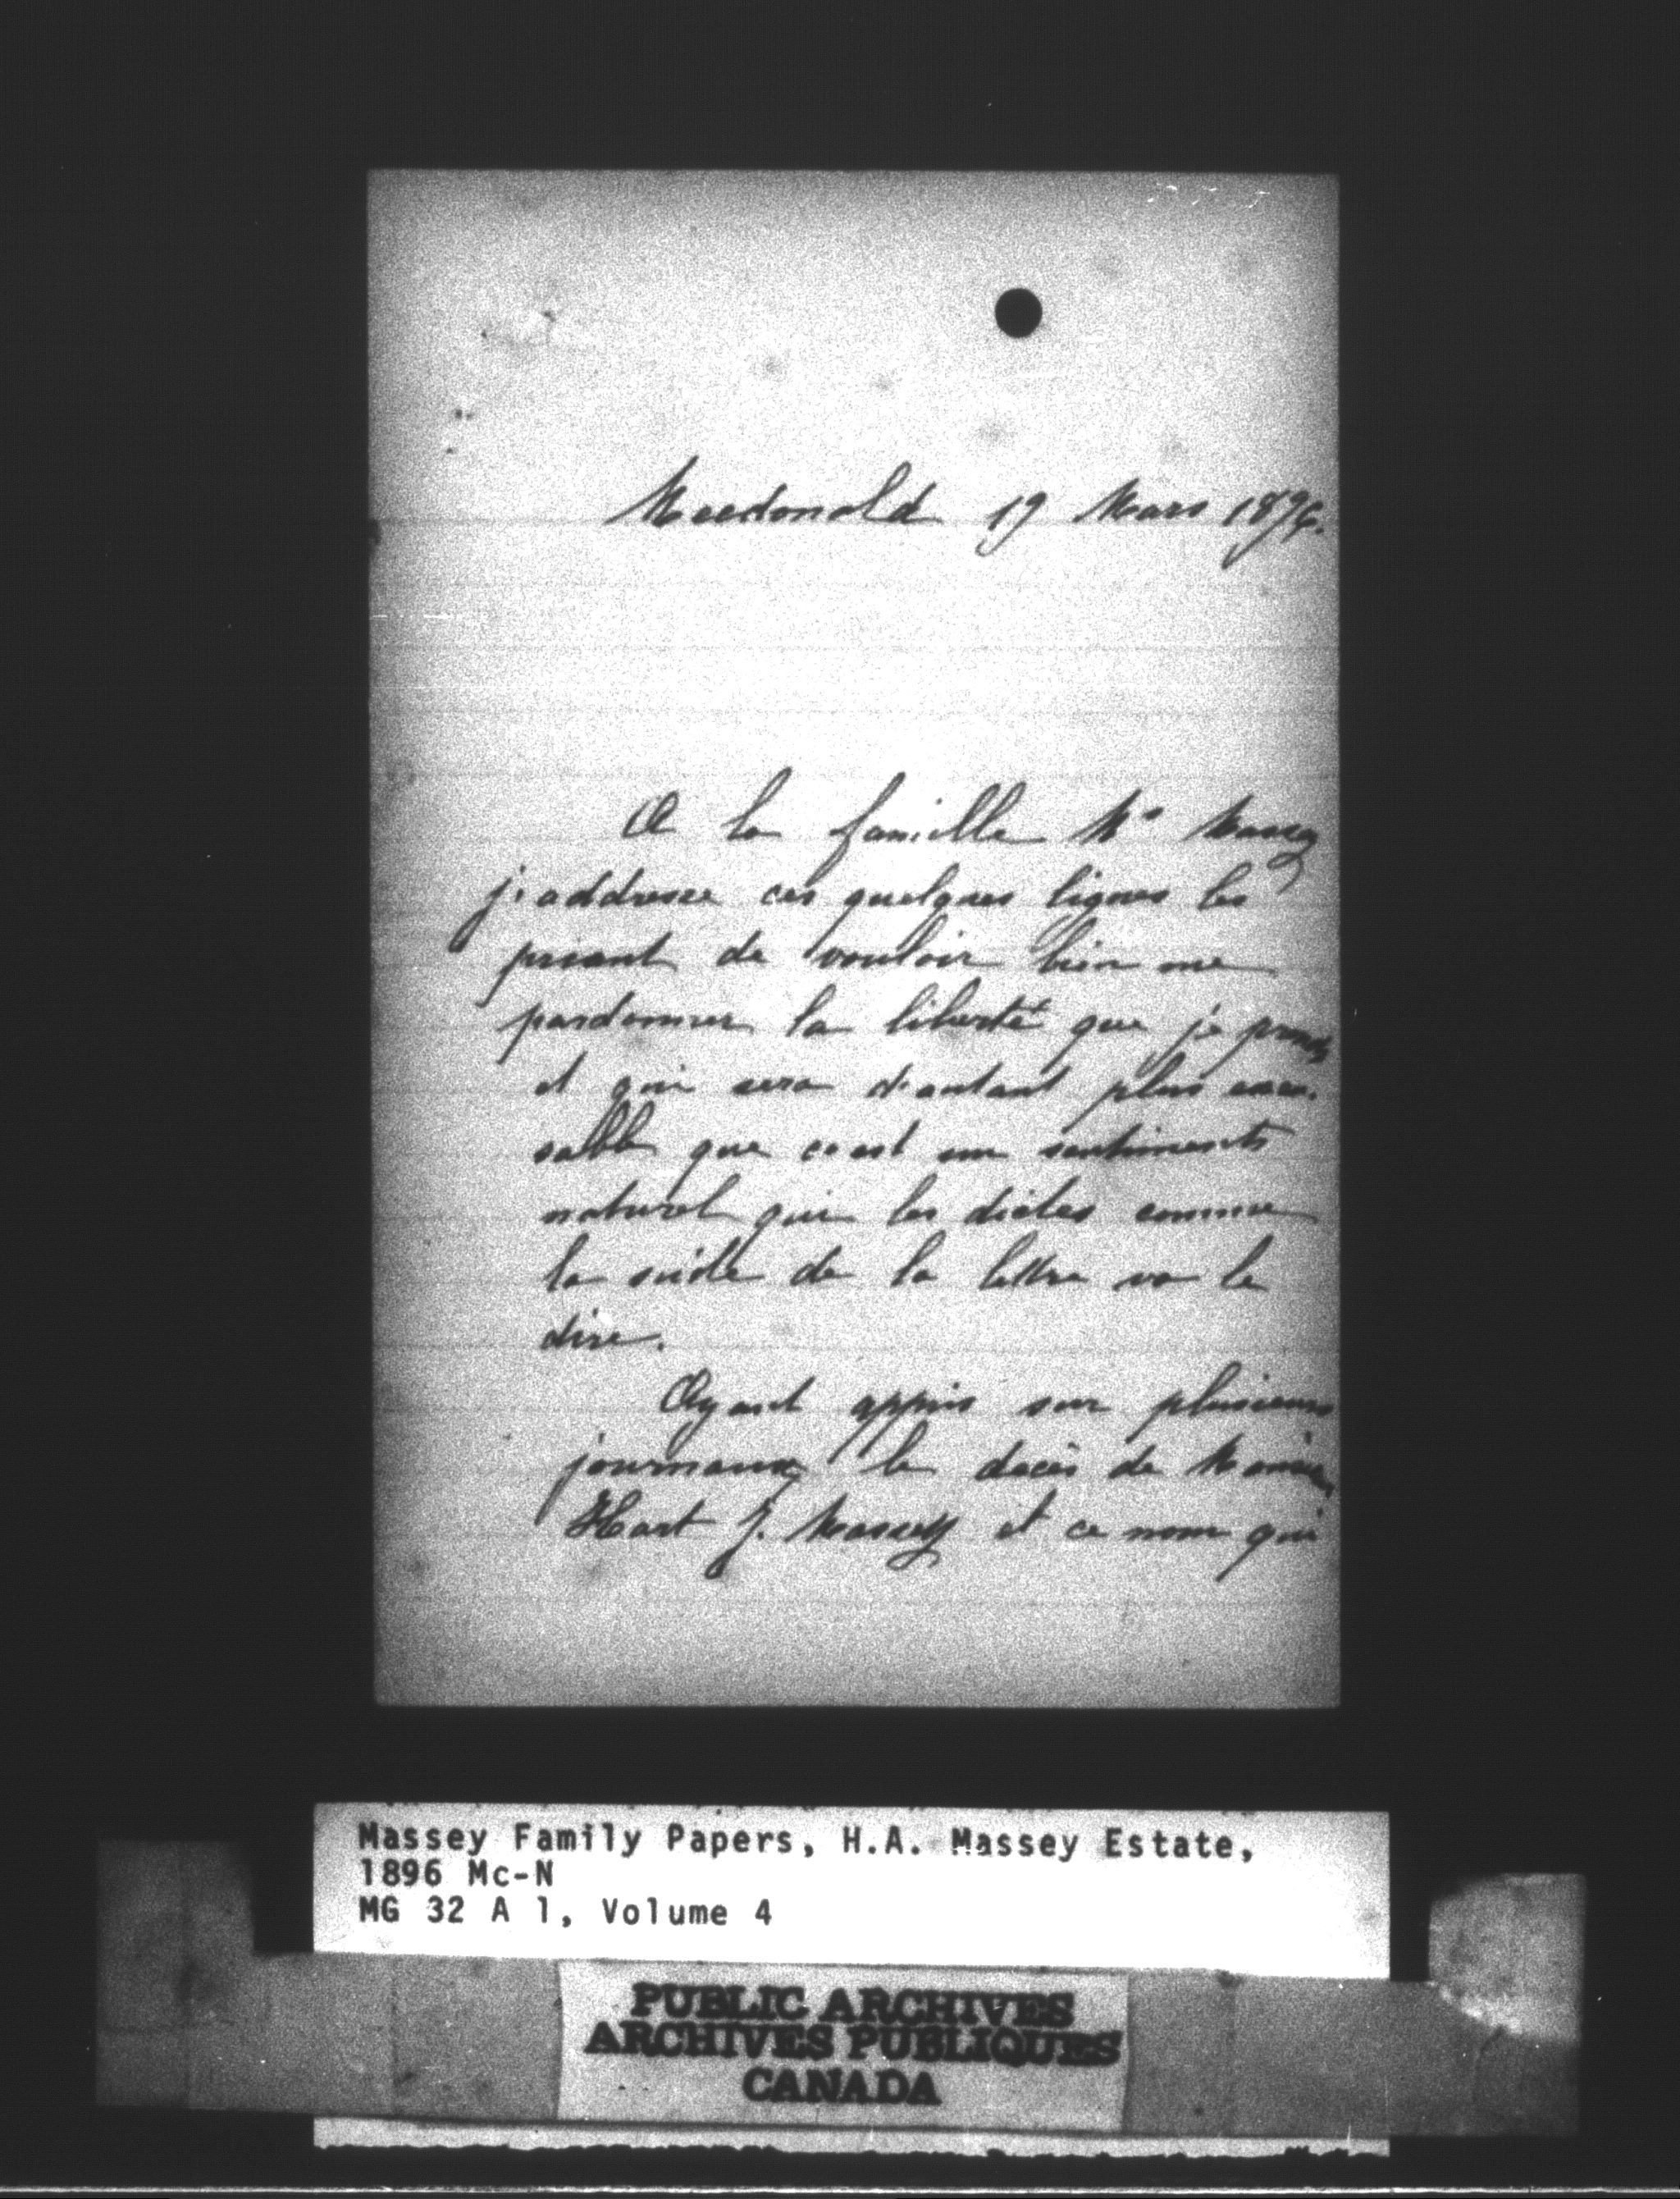 Macdonald 19 Mars 1896.
A la famille Mr Massey
j'addresse ces quelques lignes les
priant de vouloir bien me
pardonner la liberté que je prends
et qui sera d'autant plus excu-
sable que c'est un sentiments
naturel qui les dictes comme
la suite de la lettre va le
dire.
Ayant appris sur plusieurs
journaux le decès de
Hart J. Massey et ce nom qui
Massey Family Papers, H.A. Massey Estate,
1896 Mc-N
MG 32 A 1, Volume 4
PUBLIC ARCHIVES
ARCHIVES PUBLIQUES
CANADA